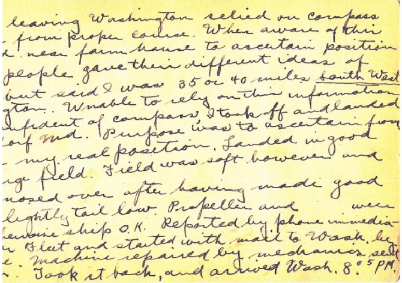 leaving Washington relied on compass
from proper course. When aware of this
near farm house to ascertain position
people gave their different ideas of
but said I was 35 or 40 miles South West
gton. Unable to rely on this information
nfident of compass, I took off and landed
of Md. Purpose was to ascertain from
my real position. Landed in good
rge field. Field was soft however and
nosed over after having made good
lightly tail low. Propeller and were
herwise ship O.K. Reported by phone immedia-
r Fleet and started with mail to Wash. by
Machine repaired by mechanics sent
Took it back, and arrived Wash. 8:05 P.M.